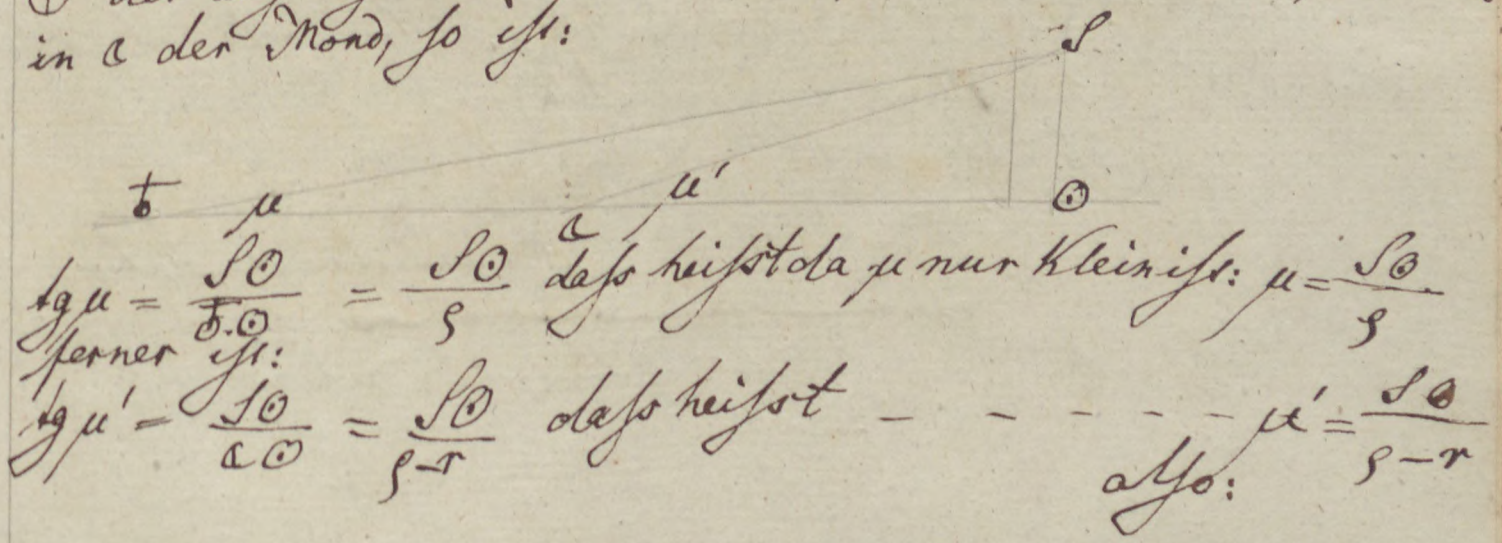 in ☾ der Mond, so ist:
S
♁ μ ☾ μ' ☉
tg μ = S☉/♁.☉ = S☉/ρ dass heisst da μ nur Klein ist: μ = S☉/ρ
ferner ist:
tg μ' = S☉/☾☉ = S☉/ρ-r dass heisst - - - - - - μ' = S☉/ρ-r
also: